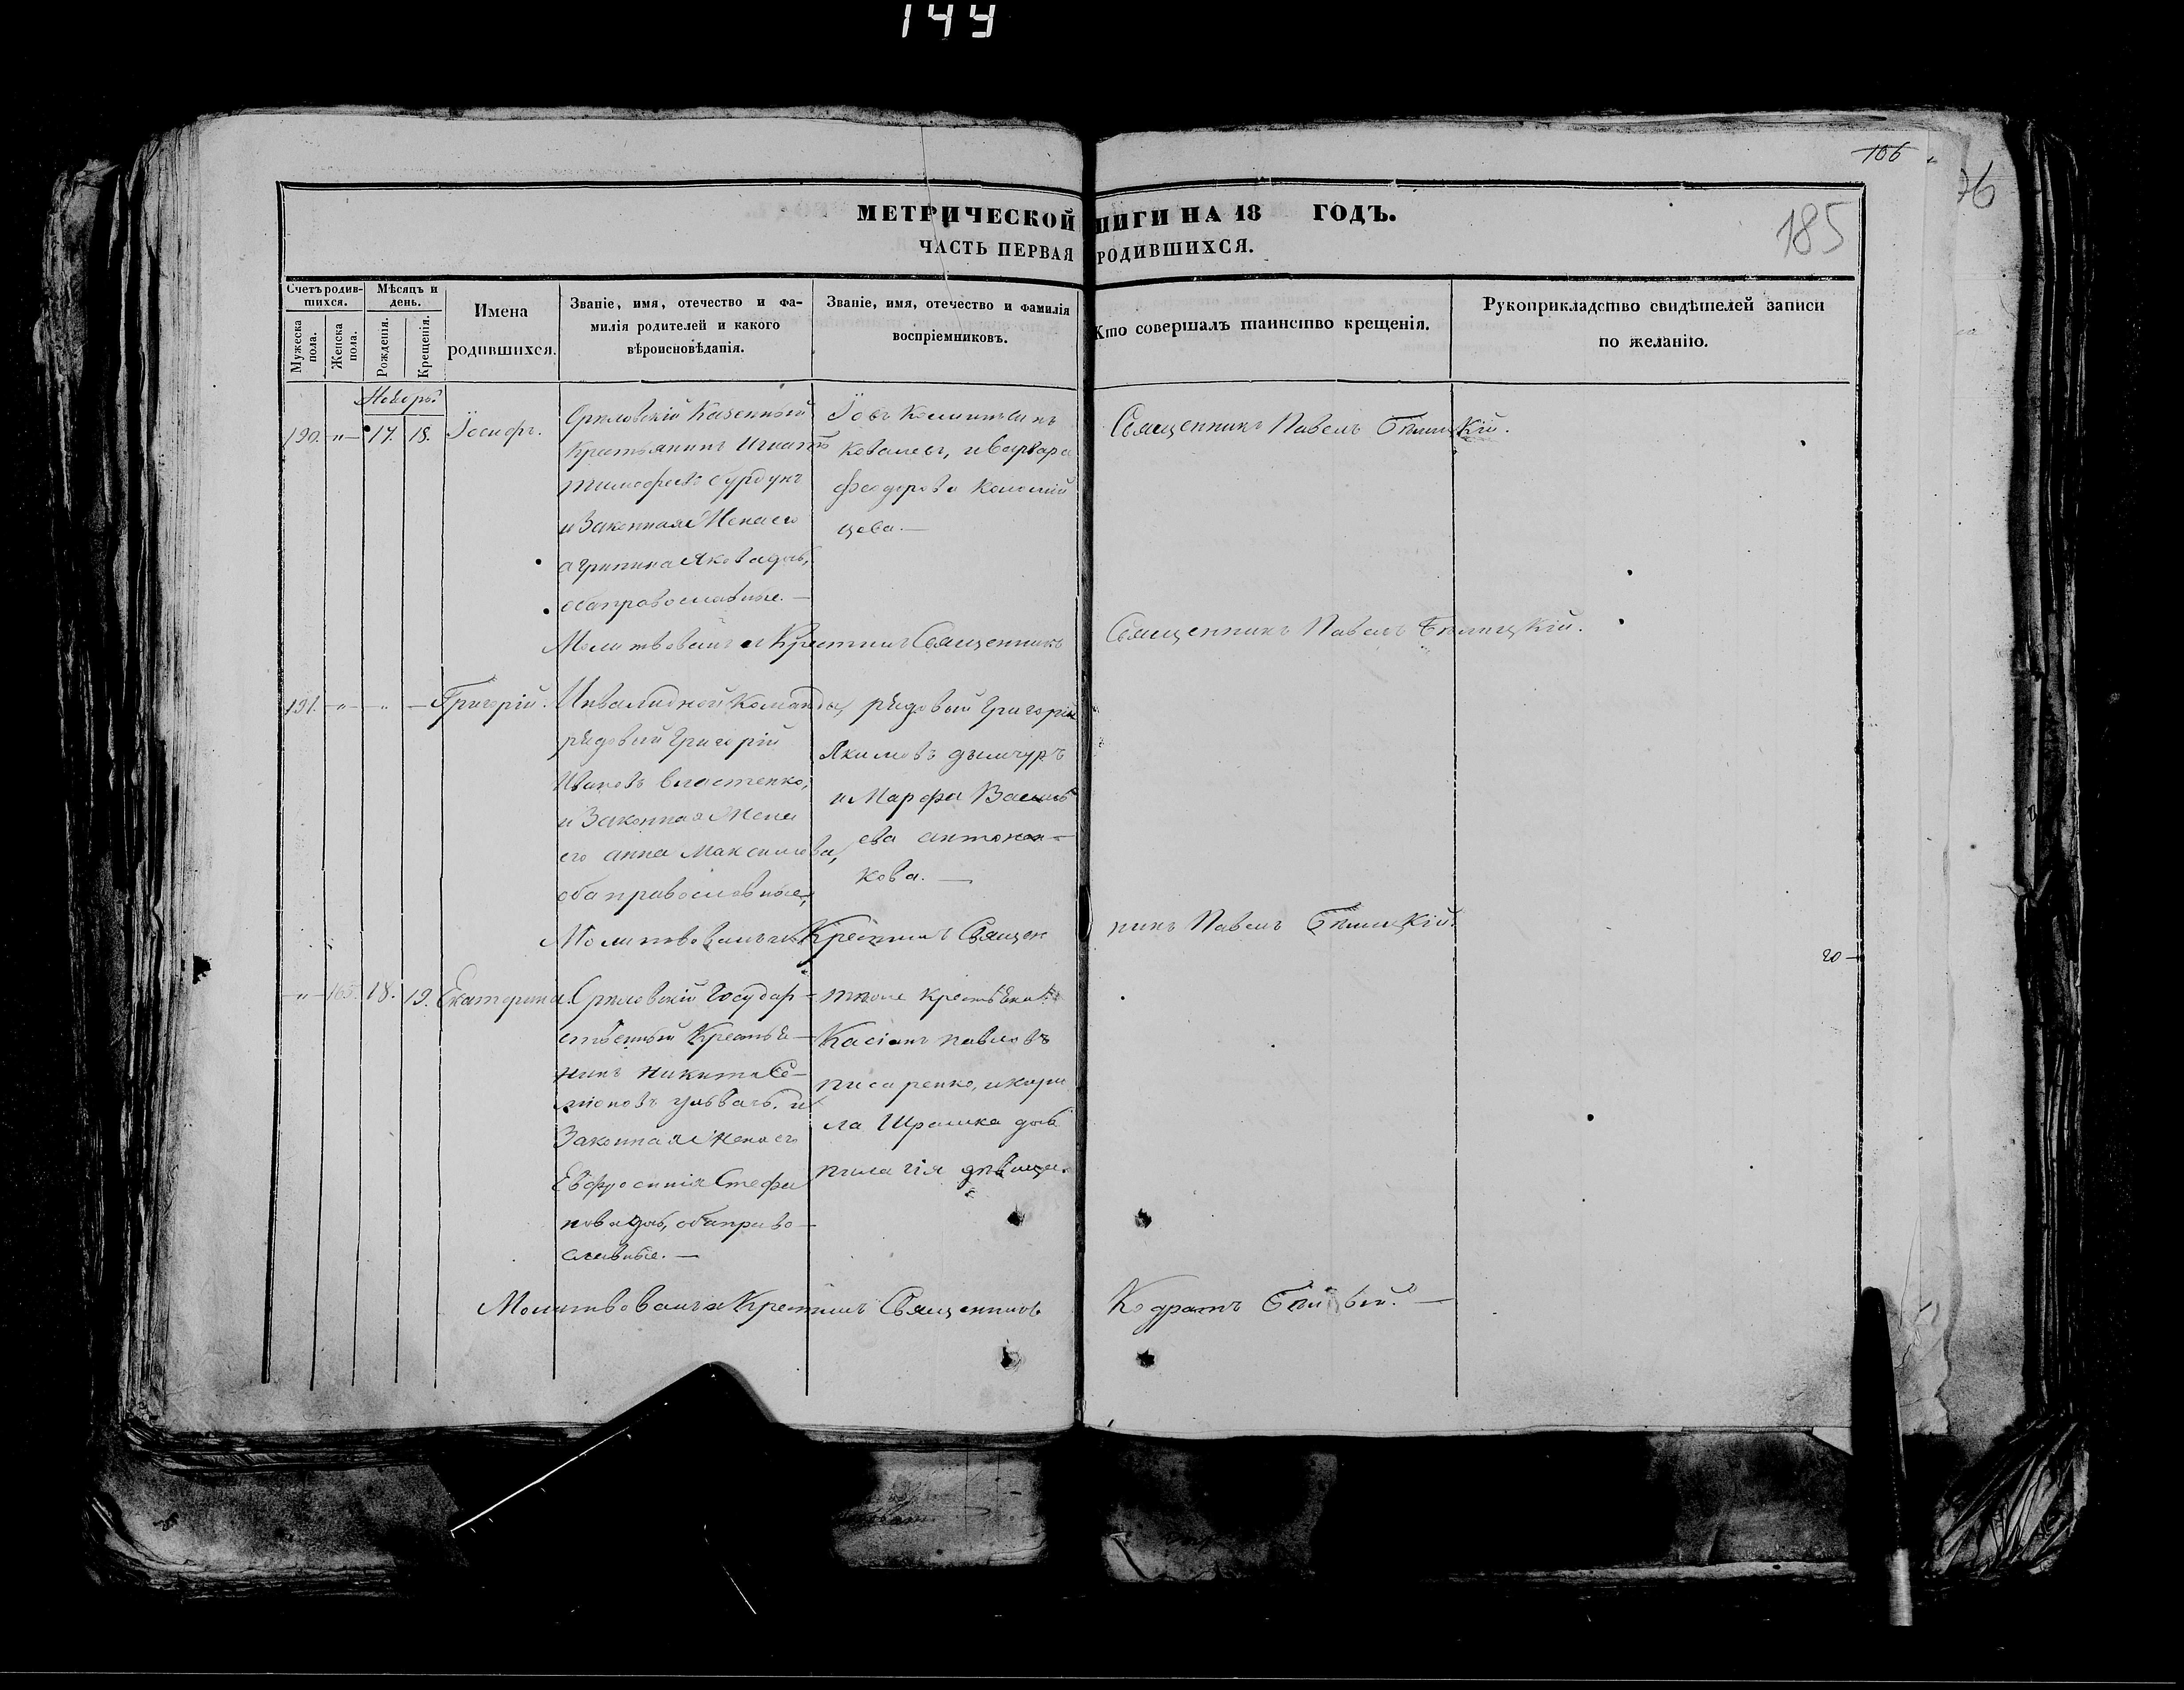 144
106
76
185
МЕТРИЧЕСКОЙ КНИГИ НА 18 ГОДЪ.
ЧАСТЬ ПЕРВАЯ РОДИВШИХСЯ.
Счетъ родив-
шихся.
Мѣсяцъ и
день.
Мужеска
пола.
Женска
пола.
Рожденія.
Крещенія.
Имена
родившихся.
Званіе, имя, отечество и фа-
милія родителей и какого
вѣроисповѣданія.
Званіе, имя, отечество и фамилія
воспріемниковъ.
Кто совершалъ таинство крещенія.
Рукоприкладство свидѣтелей записи
по желанію.
190. "— 17. 18. Іосифъ.
Казенный
Крестьянинъ Игнатъ
и Законная Жена его
агрипина Якова дочь,
оба православные. —
Іовъ
Ковалевъ, и Варвара
Феодорова Коломій
цева. —
Священникъ Павелъ Бѣлицкій.
Молитвовалъ и Крестилъ Священникъ
Священникъ Павелъ Бѣлицкій.
191. — " — " — Григорій.
Инвалидной Команды,
рядовый Григорій
Ивановъ Властенко,
и Законная Жена
его анна Максимова,
оба православные,
рядовый Григорій
Якимовъ
и Марфа Василь
ева антонен-
кова. —
Молитвовалъ и Крестилъ Священ
никъ Павелъ Бѣлицкій.
20 —
— " — 165. 18. 19. Екатерина.
Государ-
ственный Крестья-
нинъ Никита Се-
міоновъ и
Законная Жена его
Евфросинія Стефа
нова дочь, оба право-
славные. —
Касіанъ павловъ
писаренко, и кири
ла дочь
пилагія дѣвица.
Молитвовалъ и Крестилъ Священникъ
Кодратъ